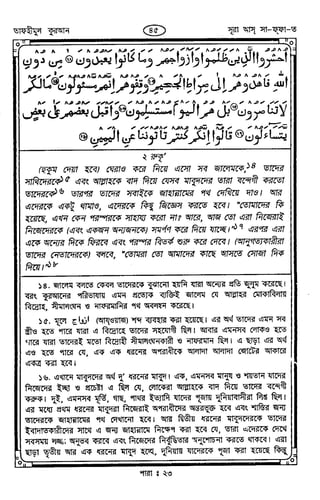 তাফহীমুল কুরআন ৪৫ সূরা আস্ সা-ফ্ফা-ত
احْشُرُوا الَّذِينَ ظَلَمُوا وَأَزْوَاجَهُمْ وَمَا كَانُوا يَعْبُدُونَ ۝ مِنْ دُونِ
اللَّهِ فَاهْدُوهُمْ إِلَى صِرَاطِ الْجَحِيمِ ۝ وَقِفُوهُمْ إِنَّهُمْ مَسْئُولُونَ ۝ مَا لَكُمْ
لَا تَنَاصَرُونَ ۝ بَلْ هُمُ الْيَوْمَ مُسْتَسْلِمُونَ ۝ وَأَقْبَلَ بَعْضُهُمْ عَلَى بَعْضٍ
يَتَسَاءَلُونَ ۝ قَالُوا إِنَّكُمْ كُنْتُمْ تَأْتُونَنَا عَنِ الْيَمِينِ ۝
২ রুকূ'
(হুকুম দেয়া হবে) ঘেরাও করে নিয়ে এসো সব জালেমকে,১৪ তাদের
সাথিদেরকে১৫ এবং আল্লাহকে বাদ দিয়ে যেসব মাবুদদের তারা বন্দেগী করতো
তাদেরকে১৬ তারপর তাদের সবাইকে জাহান্নামের পথ দেখিয়ে দাও। আর
এদেরকে একটু থামাও, এদেরকে কিছু জিজ্ঞেস করতে হবে। "তোমাদের কি
হয়েছে, এখন কেন পরস্পরকে সাহায্য করো না? আরে, আজ তো এরা নিজেরাই
নিজেদেরকে (এবং একজন অন্যজনকে) সমর্পণ করে দিয়ে যাচ্ছে।"১৭ এরপর এরা
একে অন্যের দিকে ফিরবে এবং পরস্পর বিতর্ক শুরু করে দেবে। (আনুগত্যকারীরা
তাদের নেতাদেরকে) বলবে, "তোমরা তো আমাদের কাছে আসতে সোজা দিক
দিয়ে।"১৮
১৪. জালেম বলতে কেবল তাদেরকে বুঝানো হয়নি যারা অন্যের প্রতি জুলুম করেছে।
বরং কুরআনের পরিভাষায় এমন প্রত্যেক ব্যক্তিই জালেম যে আল্লাহর মোকাবিলায়
বিদ্রোহ, সীমালংঘন ও নাফরমানির পথ অবলম্বন করেছে।
১৫. মূলে ازواج (আযওয়াজ) শব্দ ব্যবহার করা হয়েছে। এর অর্থ তাদের এমন সব
স্ত্রীও হতে পারে যারা এ বিদ্রোহে তাদের সহযোগী ছিল। আবার এমনসব লোকও হতে
পারে যারা তাদেরই মতো বিদ্রোহী সীমালংঘনকারী ও নাফরমান ছিল। এ ছাড়া এর অর্থ
এও হতে পারে যে, এক এক ধরনের অপরাধীকে আলাদা আলাদা জোটের আকারে
একত্র করা হবে।
১৬. এখানে মাবুদদের অর্থ দু' ধরনের মাবুদ। এক, এমনসব মানুষ ও শয়তান যাদের
নিজেদের ইচ্ছা ও প্রচেষ্টা এ ছিল যে, লোকেরা আল্লাহকে বাদ দিয়ে তাদের বন্দেগী
করুক। দুই, এমনসব মূর্তি, গাছ, পাথর ইত্যাদি যাদের পূজায় দুনিয়াবাসীরা লিপ্ত ছিল।
এর মধ্যে প্রথম ধরনের মাবুদরা নিজেরাই অপরাধীদের অন্তরভুক্ত হবে এবং শাস্তির জন্য
তাদেরকে জাহান্নামের পথ দেখানো হবে। আর দ্বিতীয় ধরনের মাবুদদেরকে তাদের
ইবাদাতকারীদের সাথে এ জন্য জাহান্নামে নিক্ষেপ করা হবে যে, তারা এদেরকে দেখে
সবসময় লজ্জা অনুভব করবে এবং নিজেদের নির্বুদ্ধিতার অনুশোচনা করতে থাকবে। এরা
ছাড়া তৃতীয় আর এক ধরনের মাবুদ হচ্ছে, দুনিয়ায় যাদেরকে পূজা করা হয়েছে কিন্তু
পারা : ২৩